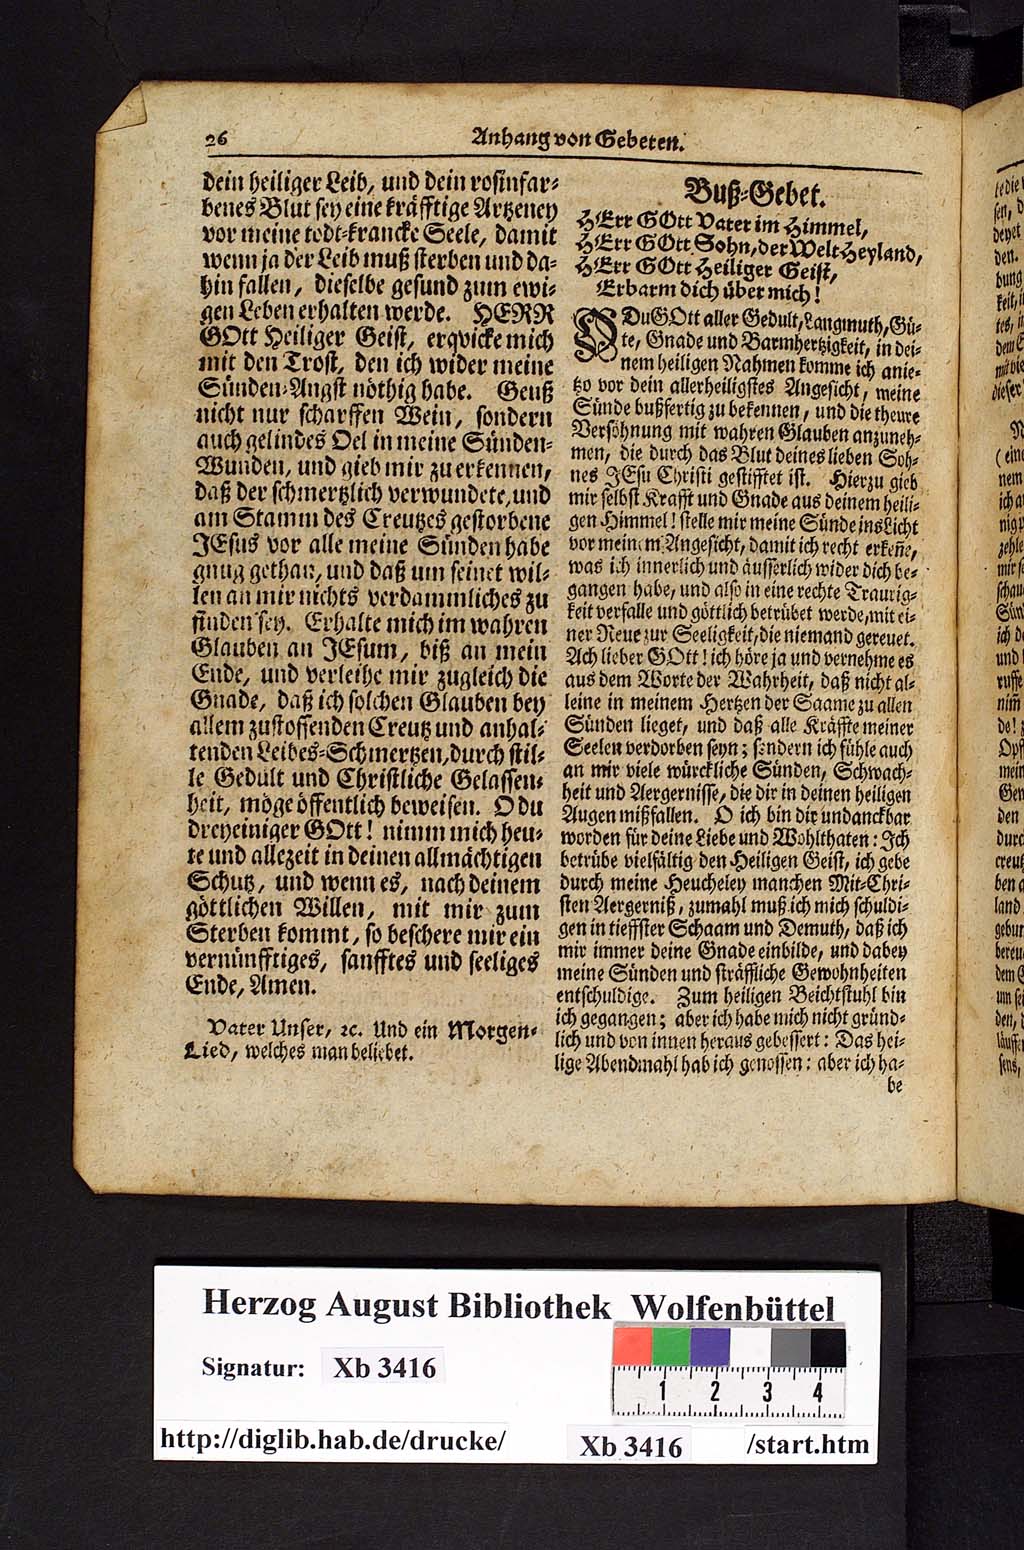 26 Anhang von Gebeten.
dein heiliger Leib, und dein rosinfar-
benes Blut sey eine kräfftige Artzeney
vor meine todt-krancke Seele, damit
wenn ja der Leib muß sterben und da-
hin fallen, dieselbe gesund zum ewi-
gen Leben erhalten werde. HERR
GOtt Heiliger Geist, erqvicke mich
mit den Trost, den ich wider meine
Sünden-Angst nöthig habe. Geuß
nicht nur scharffen Wein, sondern
auch gelindes Oel in meine Sünden-
Wunden, und gieb mir zu erkennen,
daß der schmertzlich verwundete, und
am Stamm des Creutzes gestorbene
JEsus vor alle meine Sünden habe
gnug gethan, und daß um seinet wil-
len an mir nichts verdammliches zu
finden sey. Erhalte mich im wahren
Glauben an JEsum, biß an mein
Ende, und verleihe mir zugleich die
Gnade, daß ich solchen Glauben bey
allem zustossenden Creutz und anhal-
tenden Leibes-Schmertzen, durch stil-
le Gedult und Christliche Gelassen-
heit, möge öffentlich beweisen. O du
dreyeiniger GOtt! nimm mich heu-
te und allezeit in deinen allmächtigen
Schutz, und wenn es, nach deinem
göttlichen Willen, mit mir zum
Sterben kommt, so beschere mir ein
vernünfftiges, sanfftes und seeliges
Ende, Amen.
Vater Unser, ꝛc. Und ein Morgen-
Lied, welches man beliebet.
Buß-Gebet.
HErr GOtt Vater im Himmel,
HErr GOtt Sohn, der Welt Heyland,
HErr GOtt Heiliger Geist,
Erbarm dich über mich!
O Du GOtt aller Gedult, Langmuth, Gü-
te, Gnade und Barmhertzigkeit, in dei-
nem heiligen Nahmen komme ich anie-
tzo vor dein allerheiligstes Angesicht, meine
Sünde bußfertig zu bekennen, und die theure
Versöhnung mit wahren Glauben anzuneh-
men, die durch das Blut deines lieben Soh-
nes JEsu Christi gestifftet ist. Hierzu gieb
mir selbst Krafft und Gnade aus deinem heili-
gen Himmel! stelle mir meine Sünde ins Licht
vor meinem Angesicht, damit ich recht erkeñe,
was ich innerlich und äusserlich wider dich be-
gangen habe, und also in eine rechte Traurig-
keit verfalle und göttlich betrübet werde, mit ei-
ner Reue zur Seeligkeit, die niemand gereuet.
Ach lieber GOtt! ich höre ja und vernehme es
aus dem Worte der Wahrheit, daß nicht al-
leine in meinem Hertzen der Saame zu allen
Sünden lieget, und daß alle Kräffte meiner
Seelen verdorben seyn; sondern ich fühle auch
an mir viele würckliche Sünden, Schwach-
heit und Aergernisse, die dir in deinen heiligen
Augen mißfallen. O ich bin dir undanckbar
worden für deine Liebe und Wohlthaten: Ich
betrübe vielfältig den Heiligen Geist, ich gebe
durch meine Heucheley manchen Mit-Chri-
sten Aergerniß, zumahl muß ich mich schuldi-
gen in tieffster Schaam und Demuth, daß ich
mir immer deine Gnade einbilde, und dabey
meine Sünden und sträffliche Gewohnheiten
entschuldige. Zum heiligen Beichtstuhl bin
ich gegangen; aber ich habe mich nicht gründ-
lich und von innen heraus gebessert: Das hei-
lige Abendmahl hab ich genossen: aber ich ha-
be
Herzog August Bibliothek Wolfenbüttel
Signatur: Xb 3416
1 2 3 4
http://diglib.hab.de/drucke/ Xb 3416 /start.htm